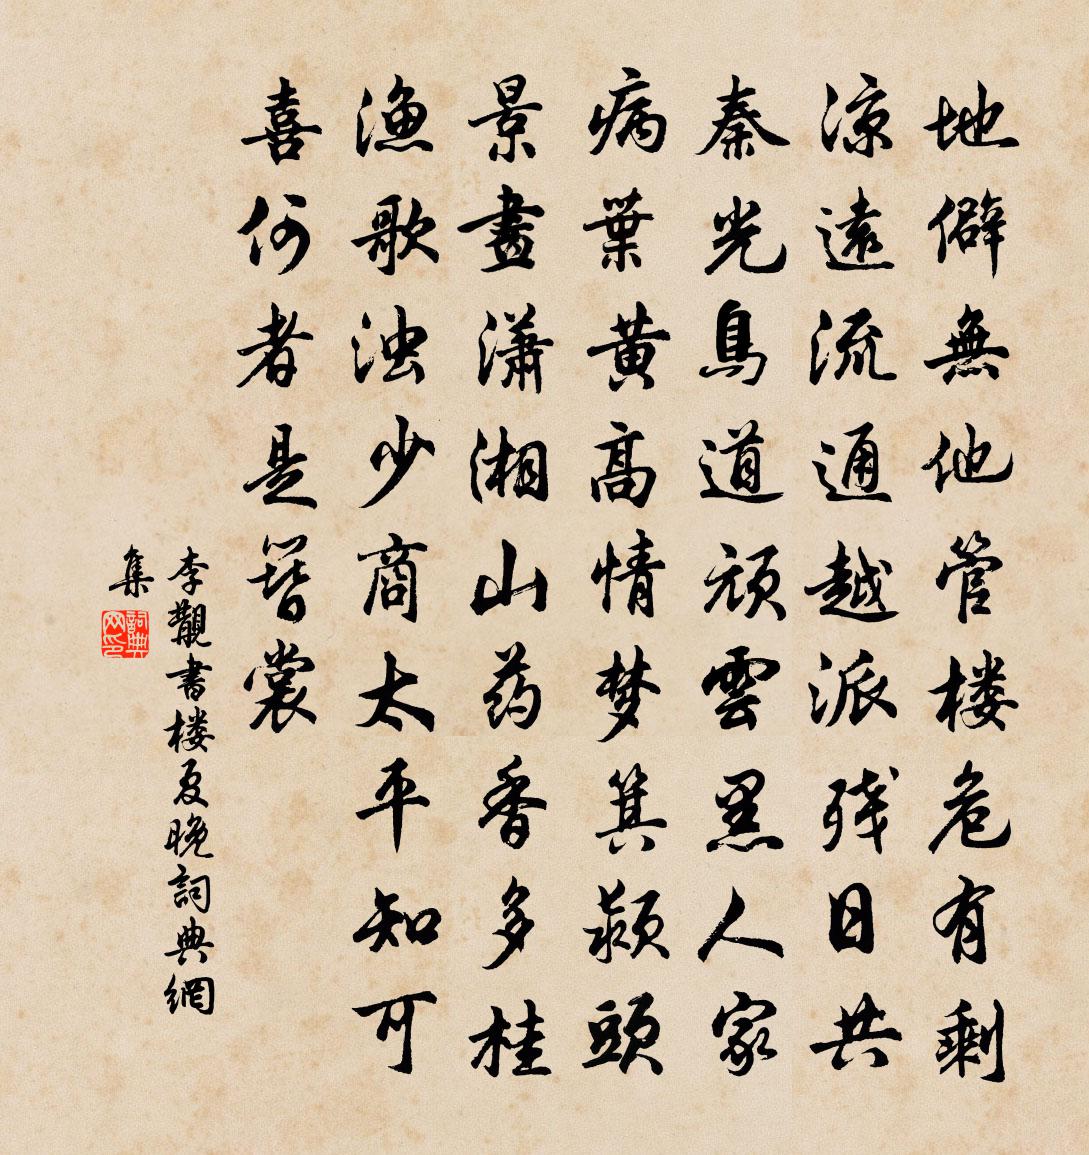 地僻無他管楼危有剩
涼遠流通越派残日共
秦光鳥道頑雲黑人家
病葉黄高情梦箕潁頭
景畫瀟湘山药香多桂
漁歌浊少商太平知可
喜何者是簪裳
李覯書楼夏晚詞典網
集
詞典网印